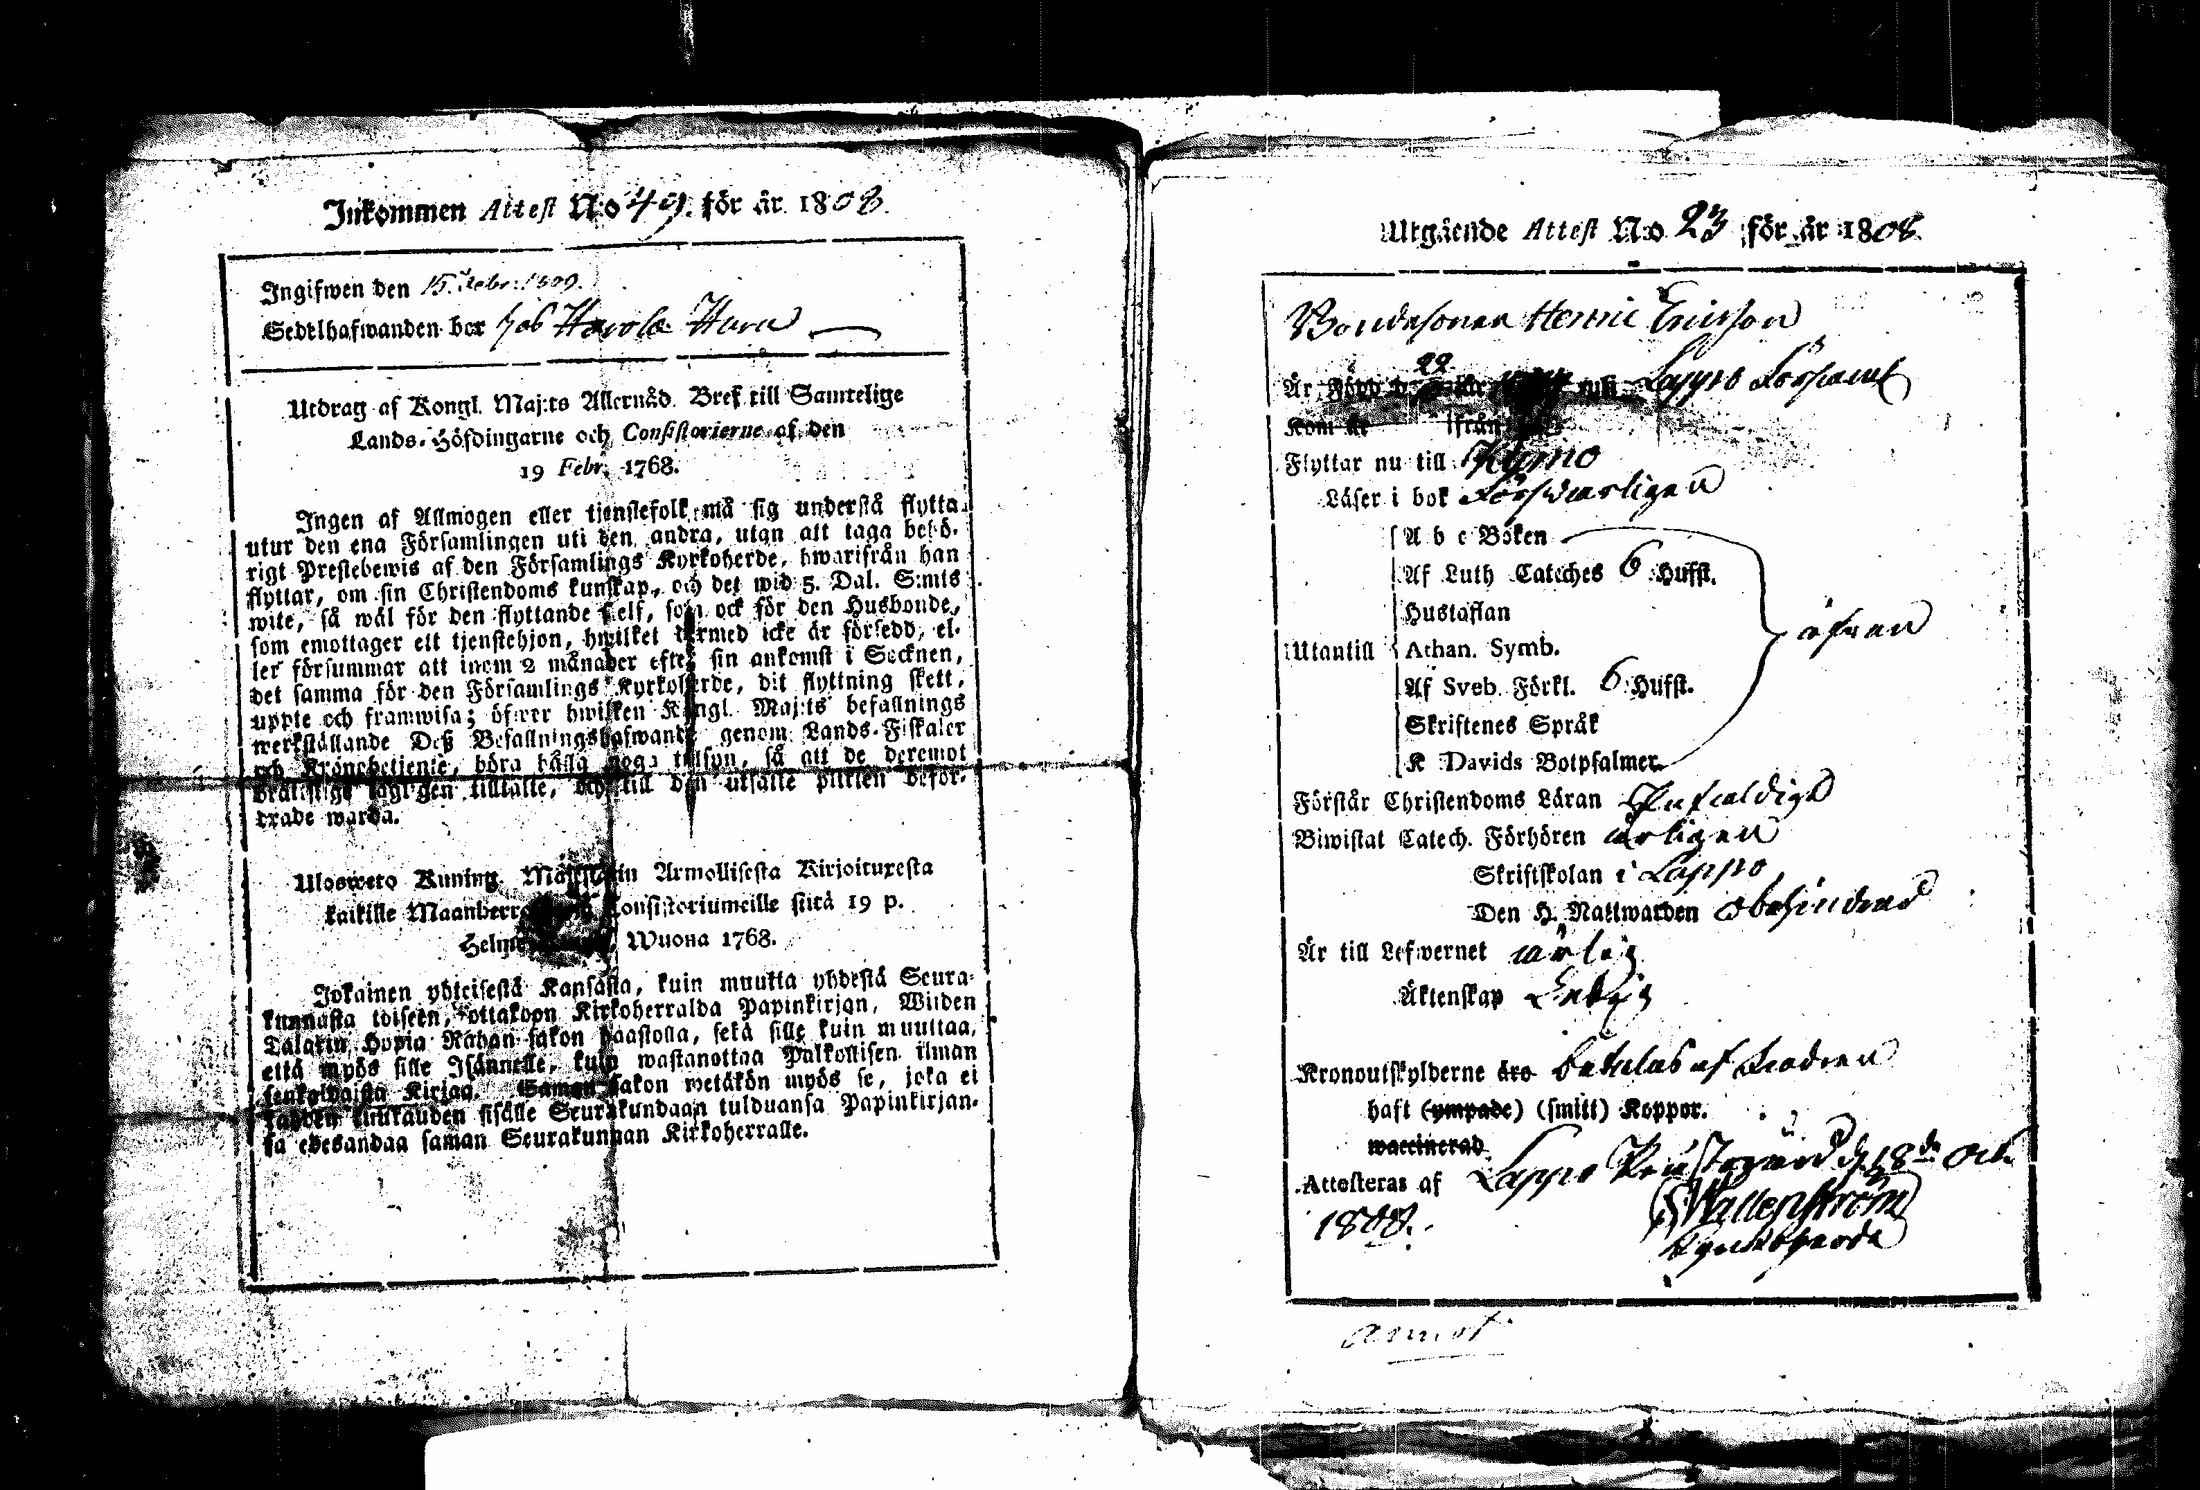 Inkommen Attest N:o 49. för år 1808.
Ingifwen den 15. Febr: 1809.
Sedelhafwanden bor hos Harola Hura
Utdrag af Kongl. Maj:ts Allernåd. Bref till Samtelige
Lands-Höfdingarne och Consistorierne af den
19 Febr. 1768.
Ingen af Allmogen eller tjenstefolk må sig understå flytta
utur den ena Församlingen uti den andra, utan att taga behö-
rigt Prestebewis af den Församlings Kyrkoherde, hwarifrån han
flyttar, om sin Christendoms kunskap, och det wid 5. Dal. S:mts
wite, så wäl för den flyttande sielf, som ock för den Husbonde,
som emottager ett tjenstehjon, hwilket dermed icke är försedd, el-
ler försummar att inom 2 månader efter sin ankomst i Socknen,
det samma för den Församlings Kyrkoherde, dit flyttning skett,
uppte och framwisa; öfwer hwilken Kongl. Maj:ts befallnings
werkställande Deß Befallningshafwande genom Lands-Fiskaler
och Kronobetjenie, böra hålla noga tillsyn, så att de deremot
brätslige lagligen tilltalte, och till den utsatte plikten beför-
drade warda.
Ulosweto Kuning. Majestetin Armollisesta Kirjoituxesta
kaikille Maanherroille Consistoriumeille siitä 19 p.
Helme Wuona 1768.
Jokainen yhteisestä Kansasta, kuin muutta yhdestä Seura-
kunnasta toiseen, ottakoon Kirkoherralda Papinkirjan, Wiiden
Talarin Hopia Rahan sakon haastolla, sekä sille kuin muuttaa,
että myös sille Isännelle, kuin wastanottaa Palkollisen ilman
senkaldaista Kirjaa. Saman sakon wetäkön myös se, joka ei
kahden kuukauden sisälle Seurakundaan tulduansa Papinkirjan-
sa edesandaa saman Seurakunnan Kirkoherralle.
Utgående Attest N:o 23 för år 1808.
Bondesonen Henric Ericsson
22
Är Född Lappo Församl
Kom år ifrån
Flyttar nu till Kumo
Läser i bok Förswarligen
A b c Boken
Af Luth Cateches 6 Hufst.
Hustaflan
Utantill Athan. Symb. äfwen
Af Sveb. Förkl. 6 Hufst.
Skriftenes Språk
K Davids Botpsalmer
Förstår Christendoms Läran Enfaldigt
Biwistat Catech. Förhören årligen
Skriftskolan i Lappo
Den H. Nattwarden obehindrad
Är till Lefwernet ärlig
Äktenskap Ledig
Kronoutskylderne äro betalas af Fadren
haft (ympade) (smitt) Koppor.
waccinerad
Attesteras af Lappo Prästgård d. 18de Oct.
1808. Wallenström
Kyrkoherde